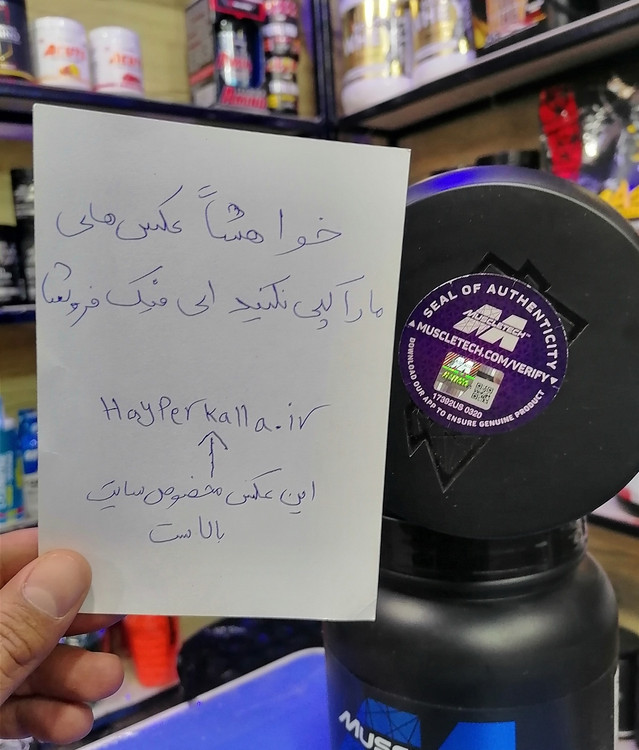 خواهشاً عکس‌های
ما را کپی نکنید ای فیک فروشا
HayPerkalla.ir
این عکس مخصوص سایت
بالاست
SEAL OF AUTHENTICITY
MUSCLETECH
MUSCLETECH.COM/VERIFY
17392US 0320
DOWNLOAD OUR APP TO ENSURE GENUINE PRODUCT